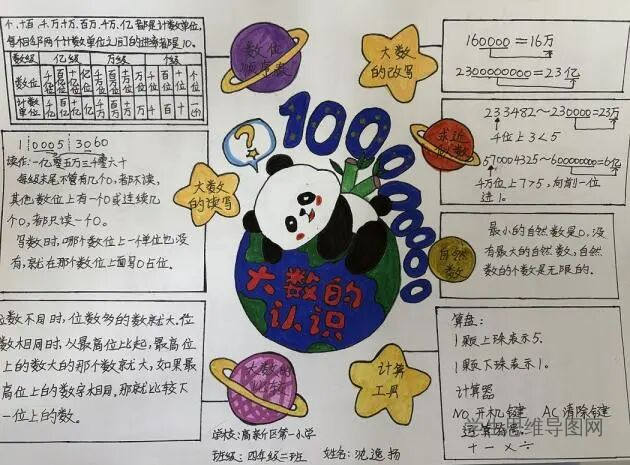 个、十、百、千、万、十万、百万、千万、亿都是计数单位,
每相邻两个计数单位之间的进率都是10。
数级 亿级 万级 个级
数位 千亿位 百亿位 十亿位 亿位 千万位 百万位 十万位 万位 千位 百位 十位 个位
计数单位 千亿 百亿 十亿 亿 千万 百万 十万 万 千 百 十 一(个)
数位顺序表
大数的改写
160000=16万
2300000000=23亿
1000000000
1 0005 3060
读作:一亿零五万三千零六十
每级末尾不管有几个0,都不读,
其他数位上有一个0或连续几
个0,都只读一个0。
写数时,哪个数位上一个单位也没
有,就在那个数位上面写0占位。
?
大数的读写
求近似数
233482~230000=23万
千位上3<5
570004325~600000000=6亿
千万位上7>5,向前一位
进1。
大数的认识
自然数
最小的自然数是0,没
有最大的自然数,自然
数的个数是无限的.
位数不同时,位数多的数就大。位
数相同时,从最高位比起,最高位
上的数大的那个数就大,如果最
高位上的数字相同,那就比较下
一位上的数。
大数的
计算工具
算盘:
1颗上珠表示5.
1颗下珠表示1。
计算器
NO 开机键 AC 清除键
+ − × ÷
学校:高新区第一小学
班级:四年级二班 姓名:沈逸扬
思维导图网